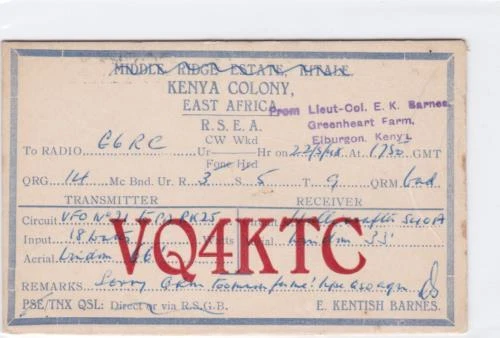 MIDDLE RIDGE ESTATE, KITALE.
KENYA COLONY,
EAST AFRICA
From Lieut-Col. E. K. Barnes,
Greenheart Farm,
Elburgon. Kenya
R. S. E. A.
CW Wkd
To RADIO G6RC Ur Hr on 22/3/48 At 1750 GMT
Fone Hrd
QRG 14 Mc Bnd. Ur. R 3 S. 5 T. 9 QRM bad
TRANSMITTER RECEIVER
Circuit VFO
Input 18 Watts Aerial Windom 33'
Aerial Windom 66
VQ4KTC
REMARKS Sorry
PSE/TNX QSL: Direct or via R.S.G.B. E. KENTISH BARNES.